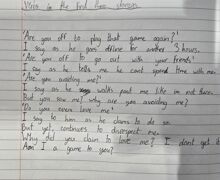 Verse in the first two person
'Are you off to play that game again?'
I say as he goes offline for another 3 hours.
'Are you off to go out with your friends'
I say as he tells me he cant spend time with me.
'Are you avoiding me?'
I say as he walks past me like im not there.
But you saw me? why are you avoiding me?
'Do you even love me'
I say to him as he claims to do so.
But yet, continues to disrespect me.
Why did you claim to love me? I dont get it
Am I a game to you?